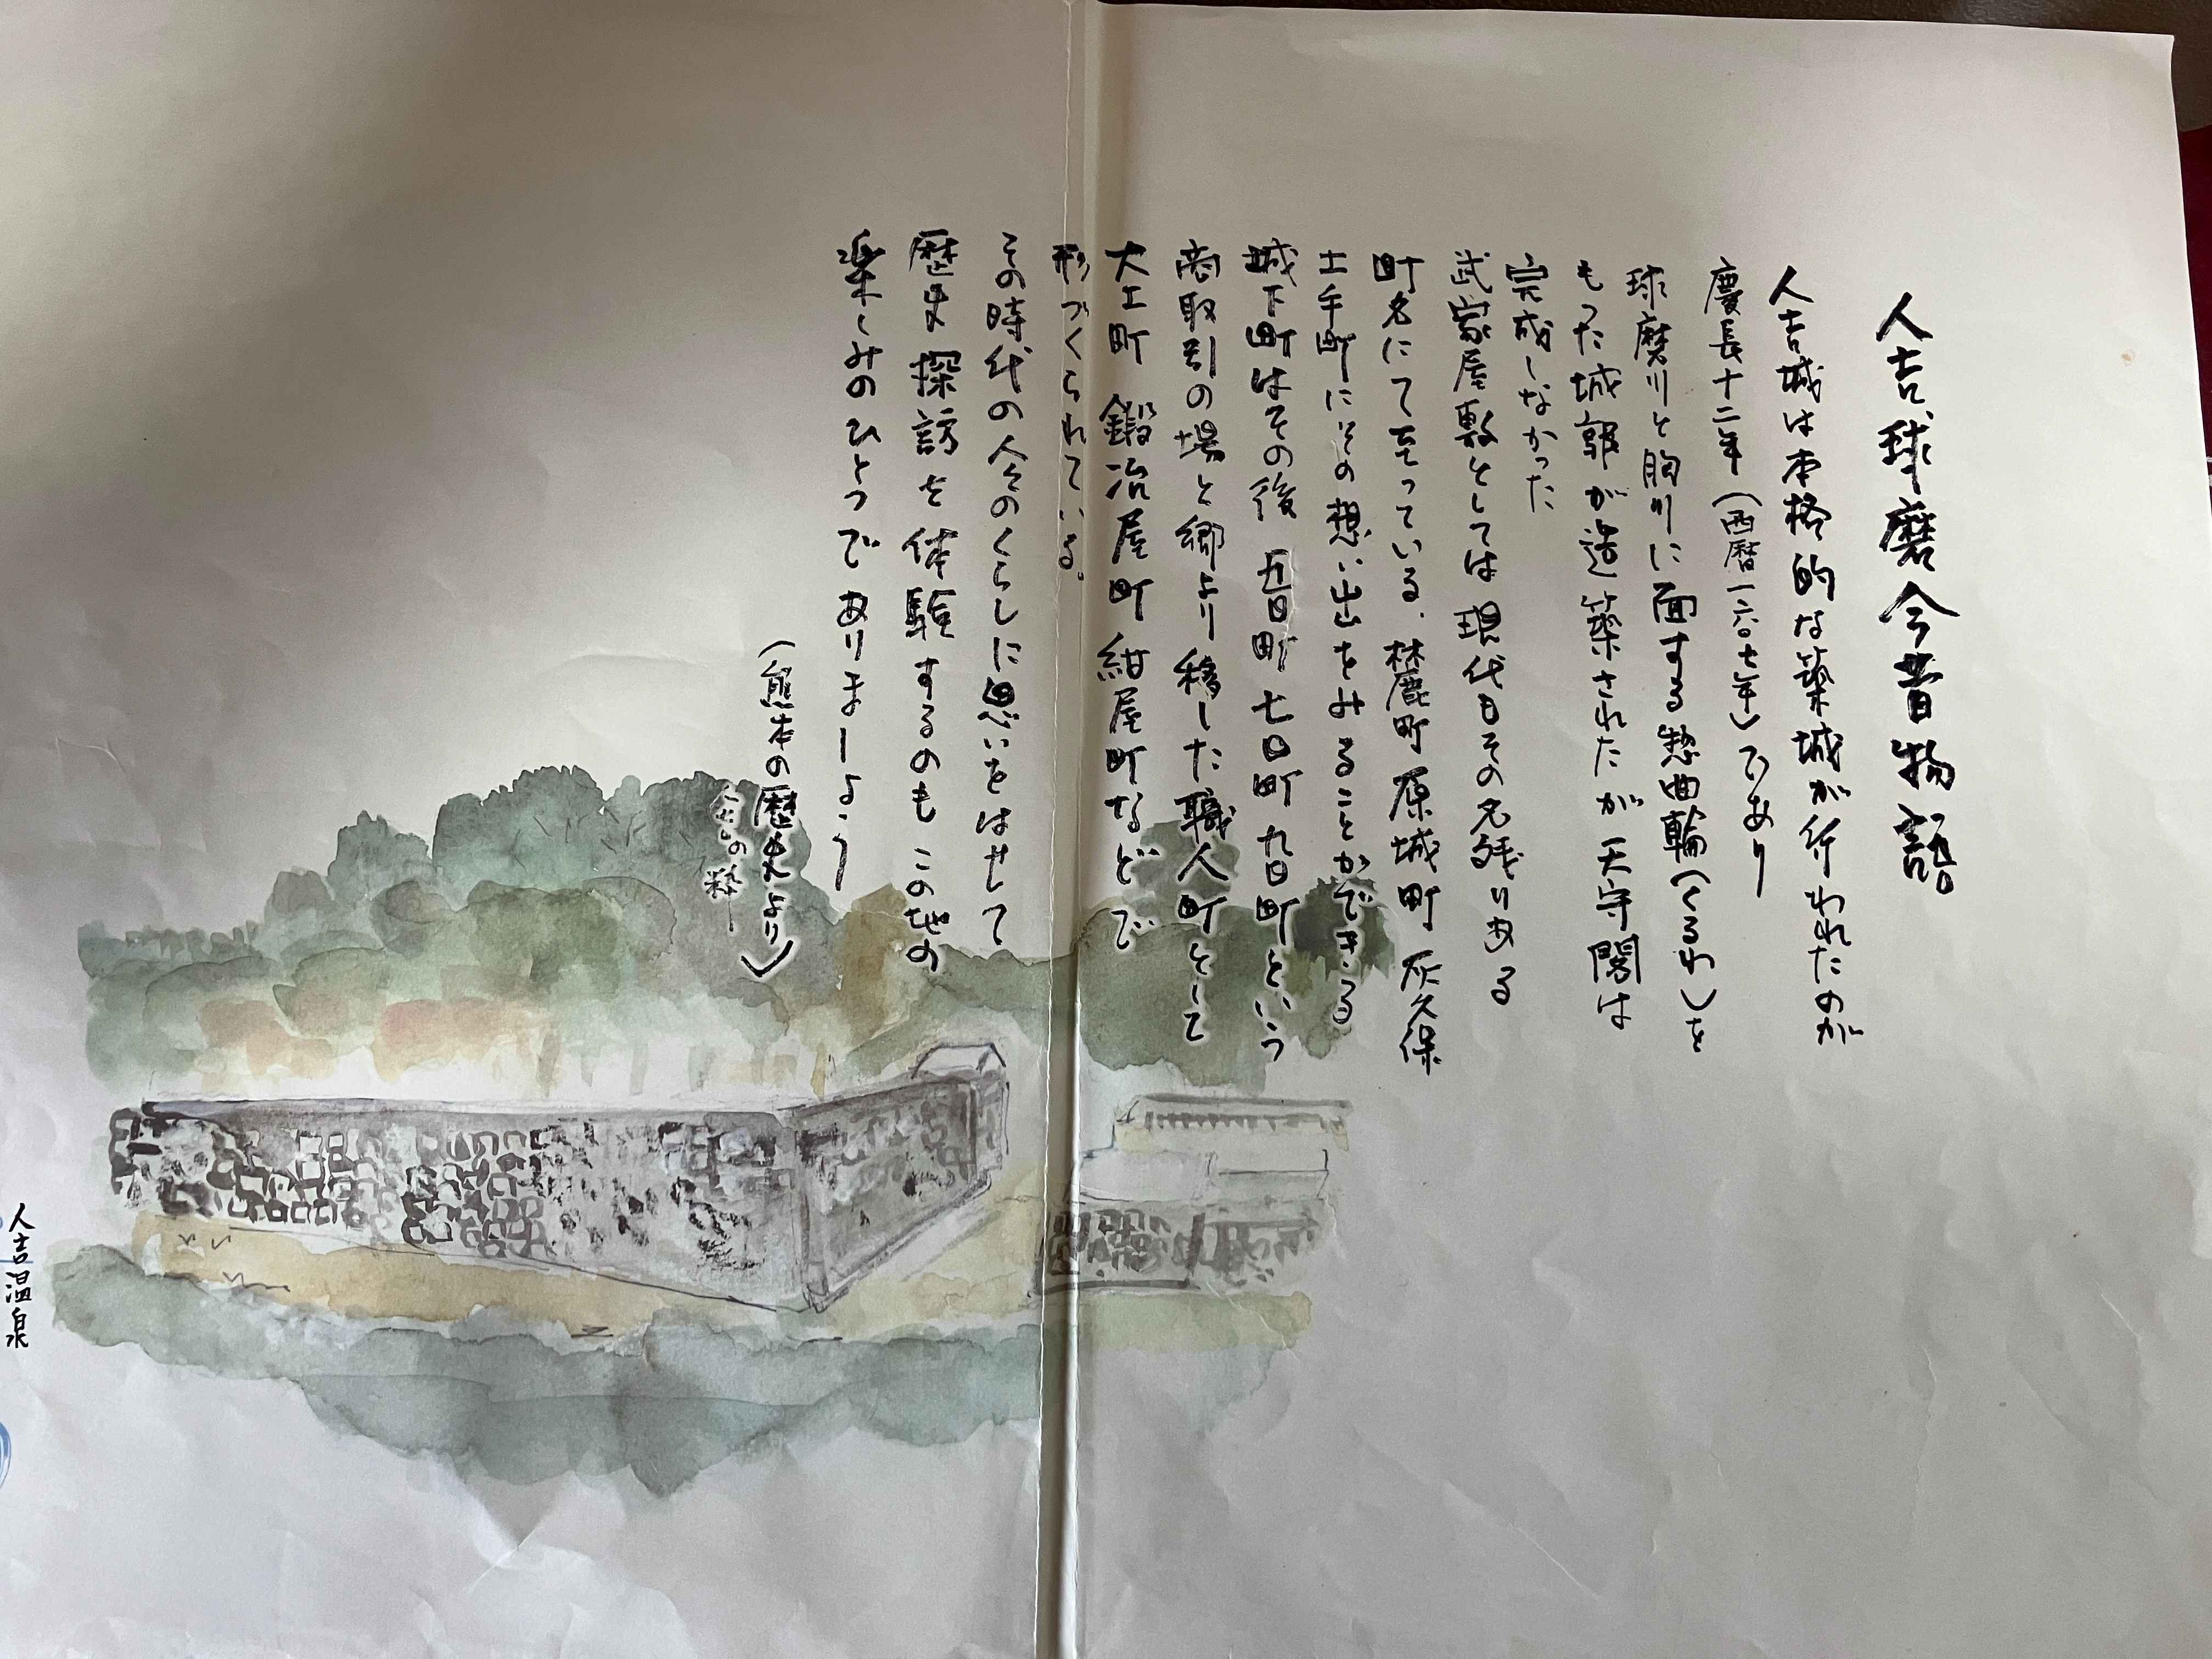 人吉球磨今昔物語
人吉城は本格的な築城が行われたのが
慶長十二年(西暦一六〇七年)であり
球磨川と胸川に面する惣曲輪(くるわ)を
もった城郭が造築されたが天守閣は
完成しなかった
武家屋敷としては現代もその名残りある
町名にて στっている。麓町原城町灰久保
土手町にその想い出をみることができる
城下町はその後五日町七日町九日町という
商取引の場と郷より移した職人町として
大工町鍛冶屋町紺屋町などで
形づくられている。
その時代の人々のくらしに思いをはせて
歴史探訪を体験するのもこの地の
楽しみのひとつでありましょう
(熊本の歴史より)
の粋
人吉温泉